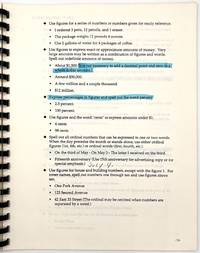 Use figures for a series of numbers or numbers given for ready reference.
I ordered 3 pens, 12 pencils, and 1 eraser.
The package weighs 12 pounds 4 ounces.
Use 2 gallons of water for 6 packages of coffee.
Use figures to express exact or approximate amounts of money. Very
large amounts may be written as a combination of figures and words.
Spell out indefinite amounts of money.
About $1,500 (It is not necessary to add a decimal point and zero to a
whole dollar amount.)
Around $50,000.
A few million and a couple thousand
$12 million.
Express percentages in figures and spell out the word percent.
2.5 percent.
100 percent.
Use figures and the word 'cents' to express amounts under $1.
6 cents
98 cents.
Spell out all ordinal numbers that can be expressed in one or two words.
When the day precedes the month or stands alone, use either ordinal
figures (1st, 4th, etc.) or ordinal words (first, fourth, etc.).
On the third of May - On May 3 - The letter I received on the third.
Fifteenth anniversary (Use 15th anniversary for advertising copy or for
special emphasis.)
Use figures for house and building numbers, except with the figure 1. For
street names, spell out numbers one through ten and use figures above
ten.
One Park Avenue
123 Second Avenue
62 East 35 Street (The ordinal may be omitted when numbers are
separated by a word.)